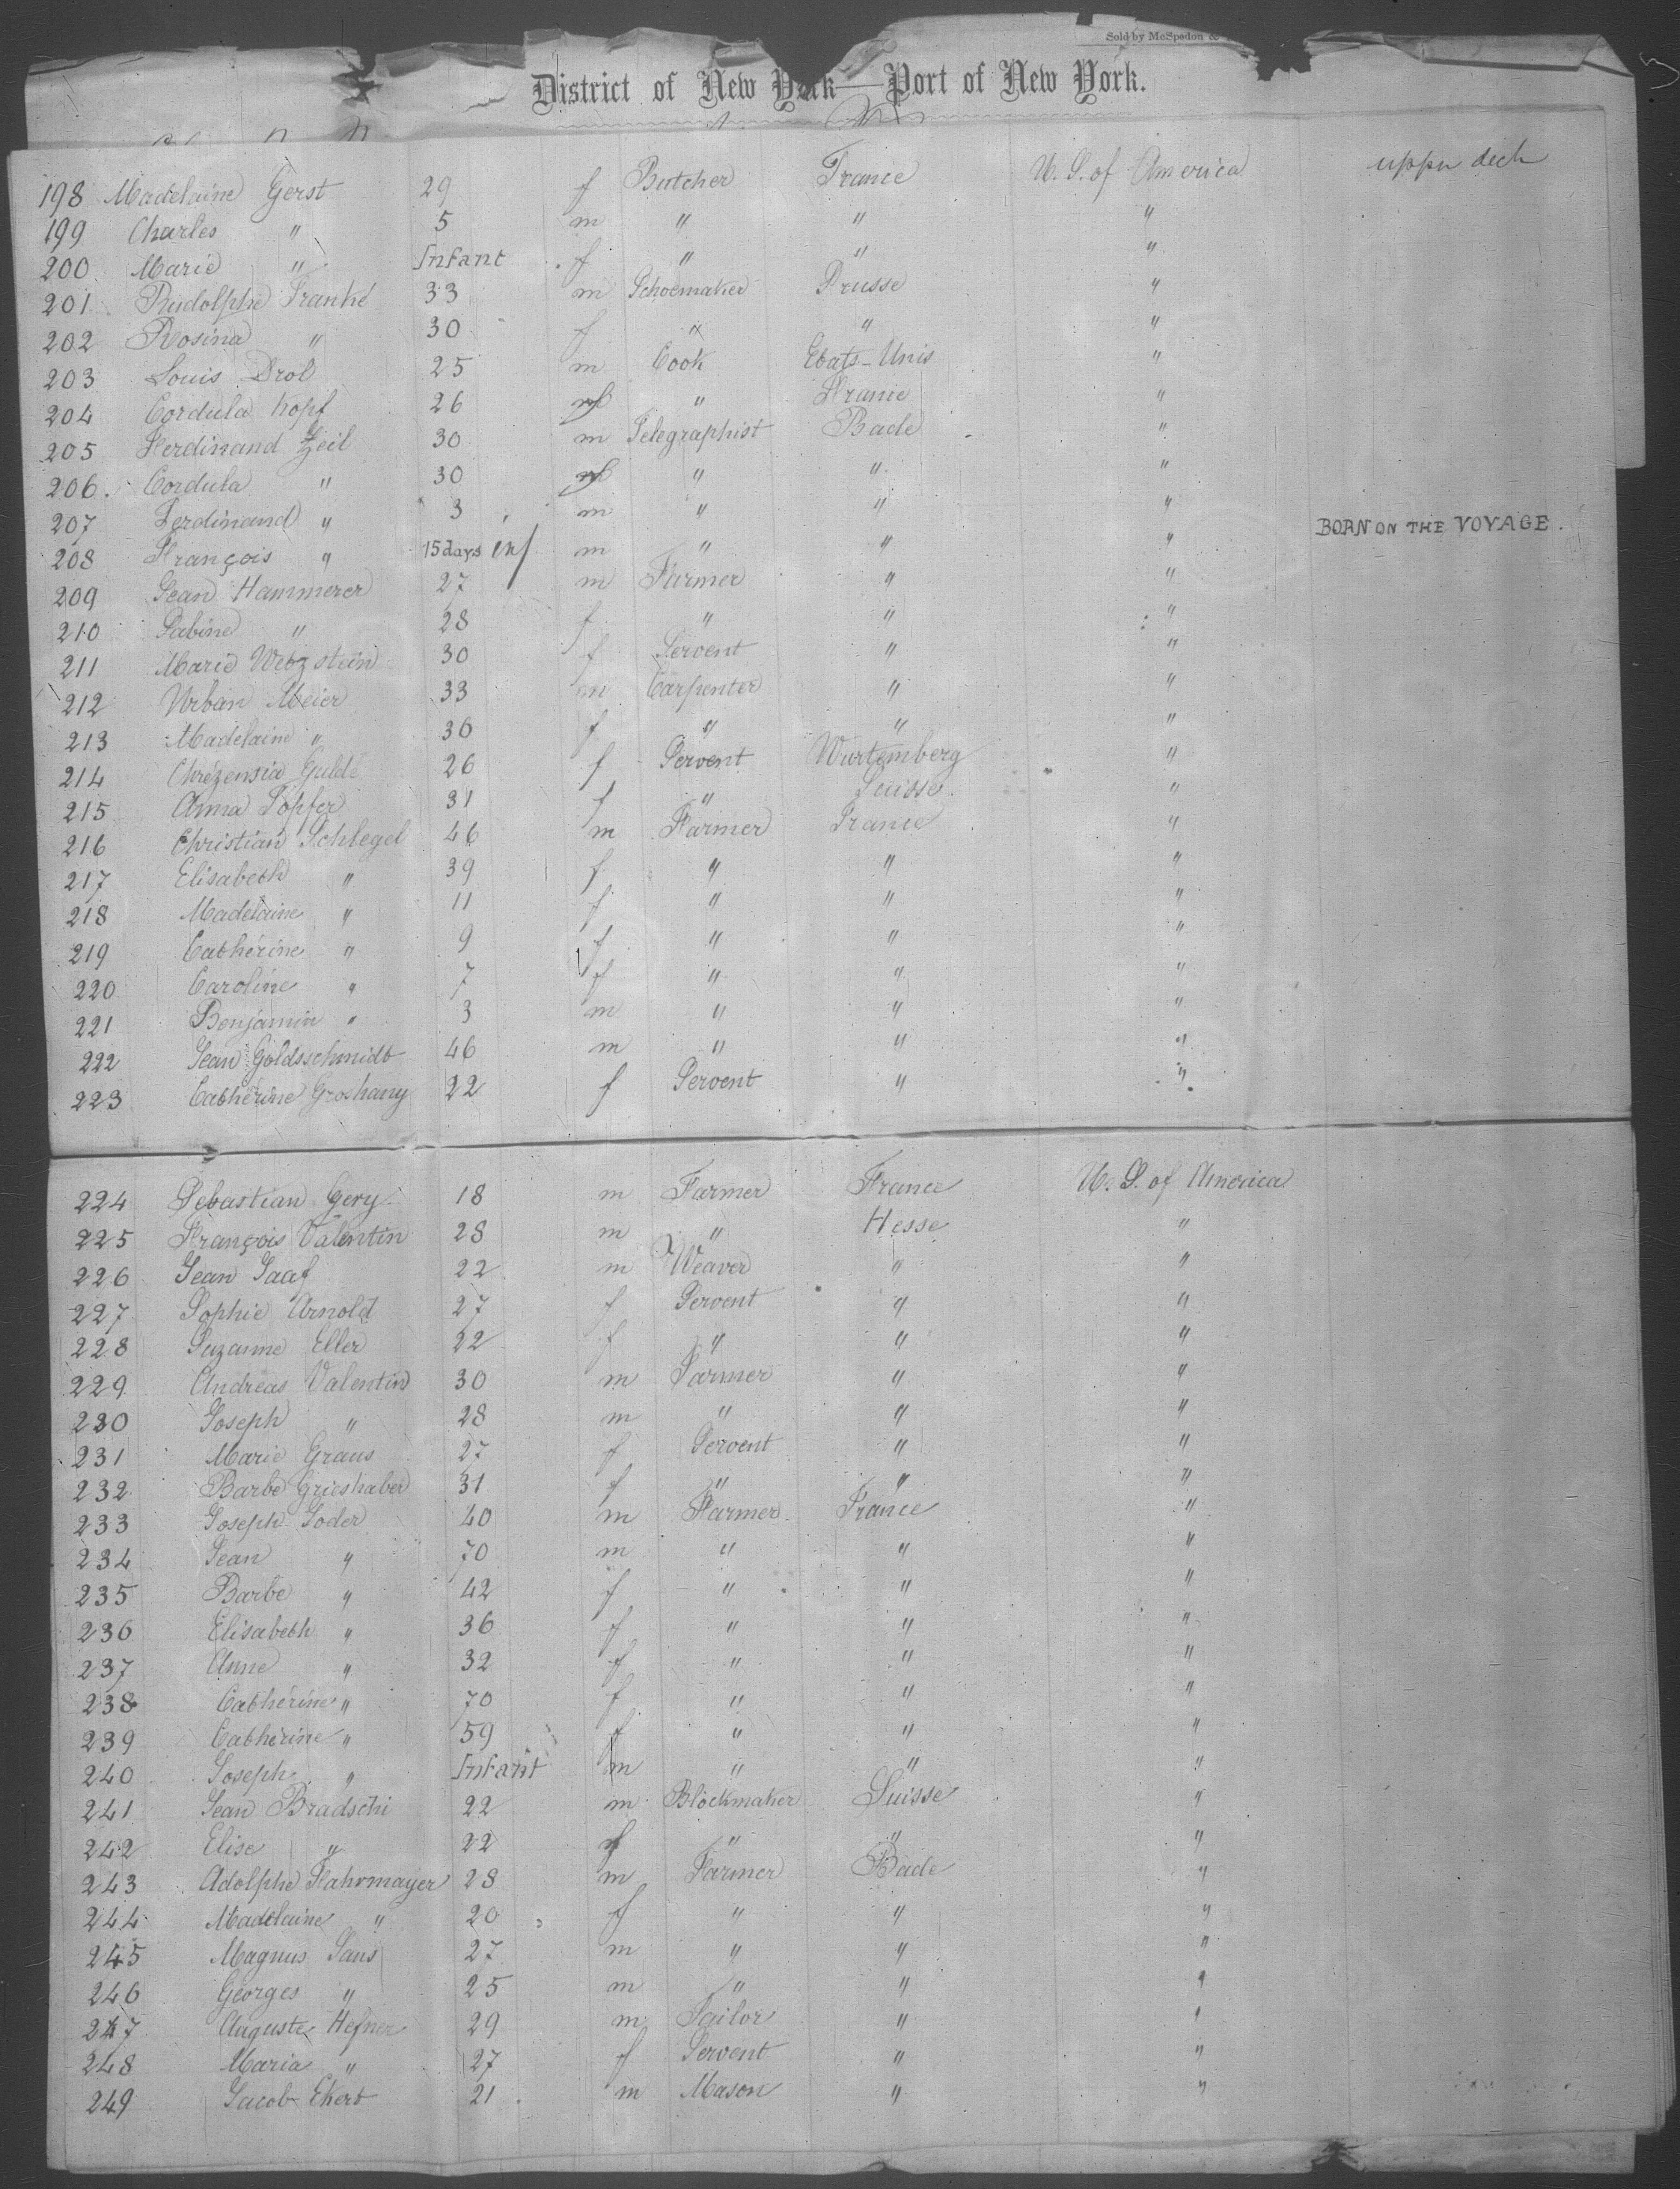 Sold by McSpedon &
District of New York—Port of New York.
198 Madelaine Gerst 29 f Butcher France U. S. of America upper deck
199 Charles " 5 m " " "
200 Marie " Infant f " " "
201 Rudolphe Franké 33 m Schoemaker Prusse "
202 Rosina " 30 f " " "
203 Louis Drol 25 m Cook Etats-Unis "
204 Cordula Kopf 26 f " France "
205 Ferdinand Zeil 30 m Telegraphist Bade "
206 Cordula " 30 f " " "
207 Ferdinand " 3 m " " "
208 François " 15 days inf m " " " BORN ON THE VOYAGE.
209 Jean Hammerer 27 m Farmer " "
210 Sabine " 28 f " " "
211 Marie Wetzstein 30 f Servent " "
212 Urban Meier 33 m Carpenter " "
213 Madelaine " 36 f " " "
214 Chrézensia Guldé 26 f Servent Wurtemberg "
215 Anna Töpfer 31 f " Suisse "
216 Christian Schlegel 46 m Farmer France "
217 Elisabeth " 39 f " " "
218 Madelaine " 11 f " " "
219 Cathérine " 9 f " " "
220 Caroline " 7 f " " "
221 Benjamin " 3 m " " "
222 Jean Goldsschmidt 46 m " " "
223 Cathérine Groshany 22 f Servent " "
224 Sebastian Gery 18 m Farmer France U. S. of America
225 François Valentin 28 m " Hesse "
226 Jean Saaf 22 m Weaver " "
227 Sophie Arnold 27 f Servent " "
228 Suzanne Eller 22 f " " "
229 Andreas Valentin 30 m Farmer " "
230 Joseph " 28 m " " "
231 Marie Graus 27 f Servent " "
232 Barbe Grieshaber 31 f " " "
233 Joseph Soder 40 m Farmer France "
234 Jean " 70 m " " "
235 Barbe " 42 f " " "
236 Elisabeth " 36 f " " "
237 Anne " 32 f " " "
238 Cathérine " 70 f " " "
239 Cathérine " 59 f " " "
240 Joseph " Infant m " " "
241 Jean Bradschi 22 m Blockmaker Suisse "
242 Elise " 22 f " " "
243 Adolphe Fahrmayer 28 m Farmer Bade "
244 Madelaine " 20 f " " "
245 Magnus Sans 27 m " " "
246 Georges " 25 m " " "
247 Auguste Hefner 29 m Tailor " "
248 Maria " 27 f Servent " "
249 Jacob Ekert 21 m Mason " "